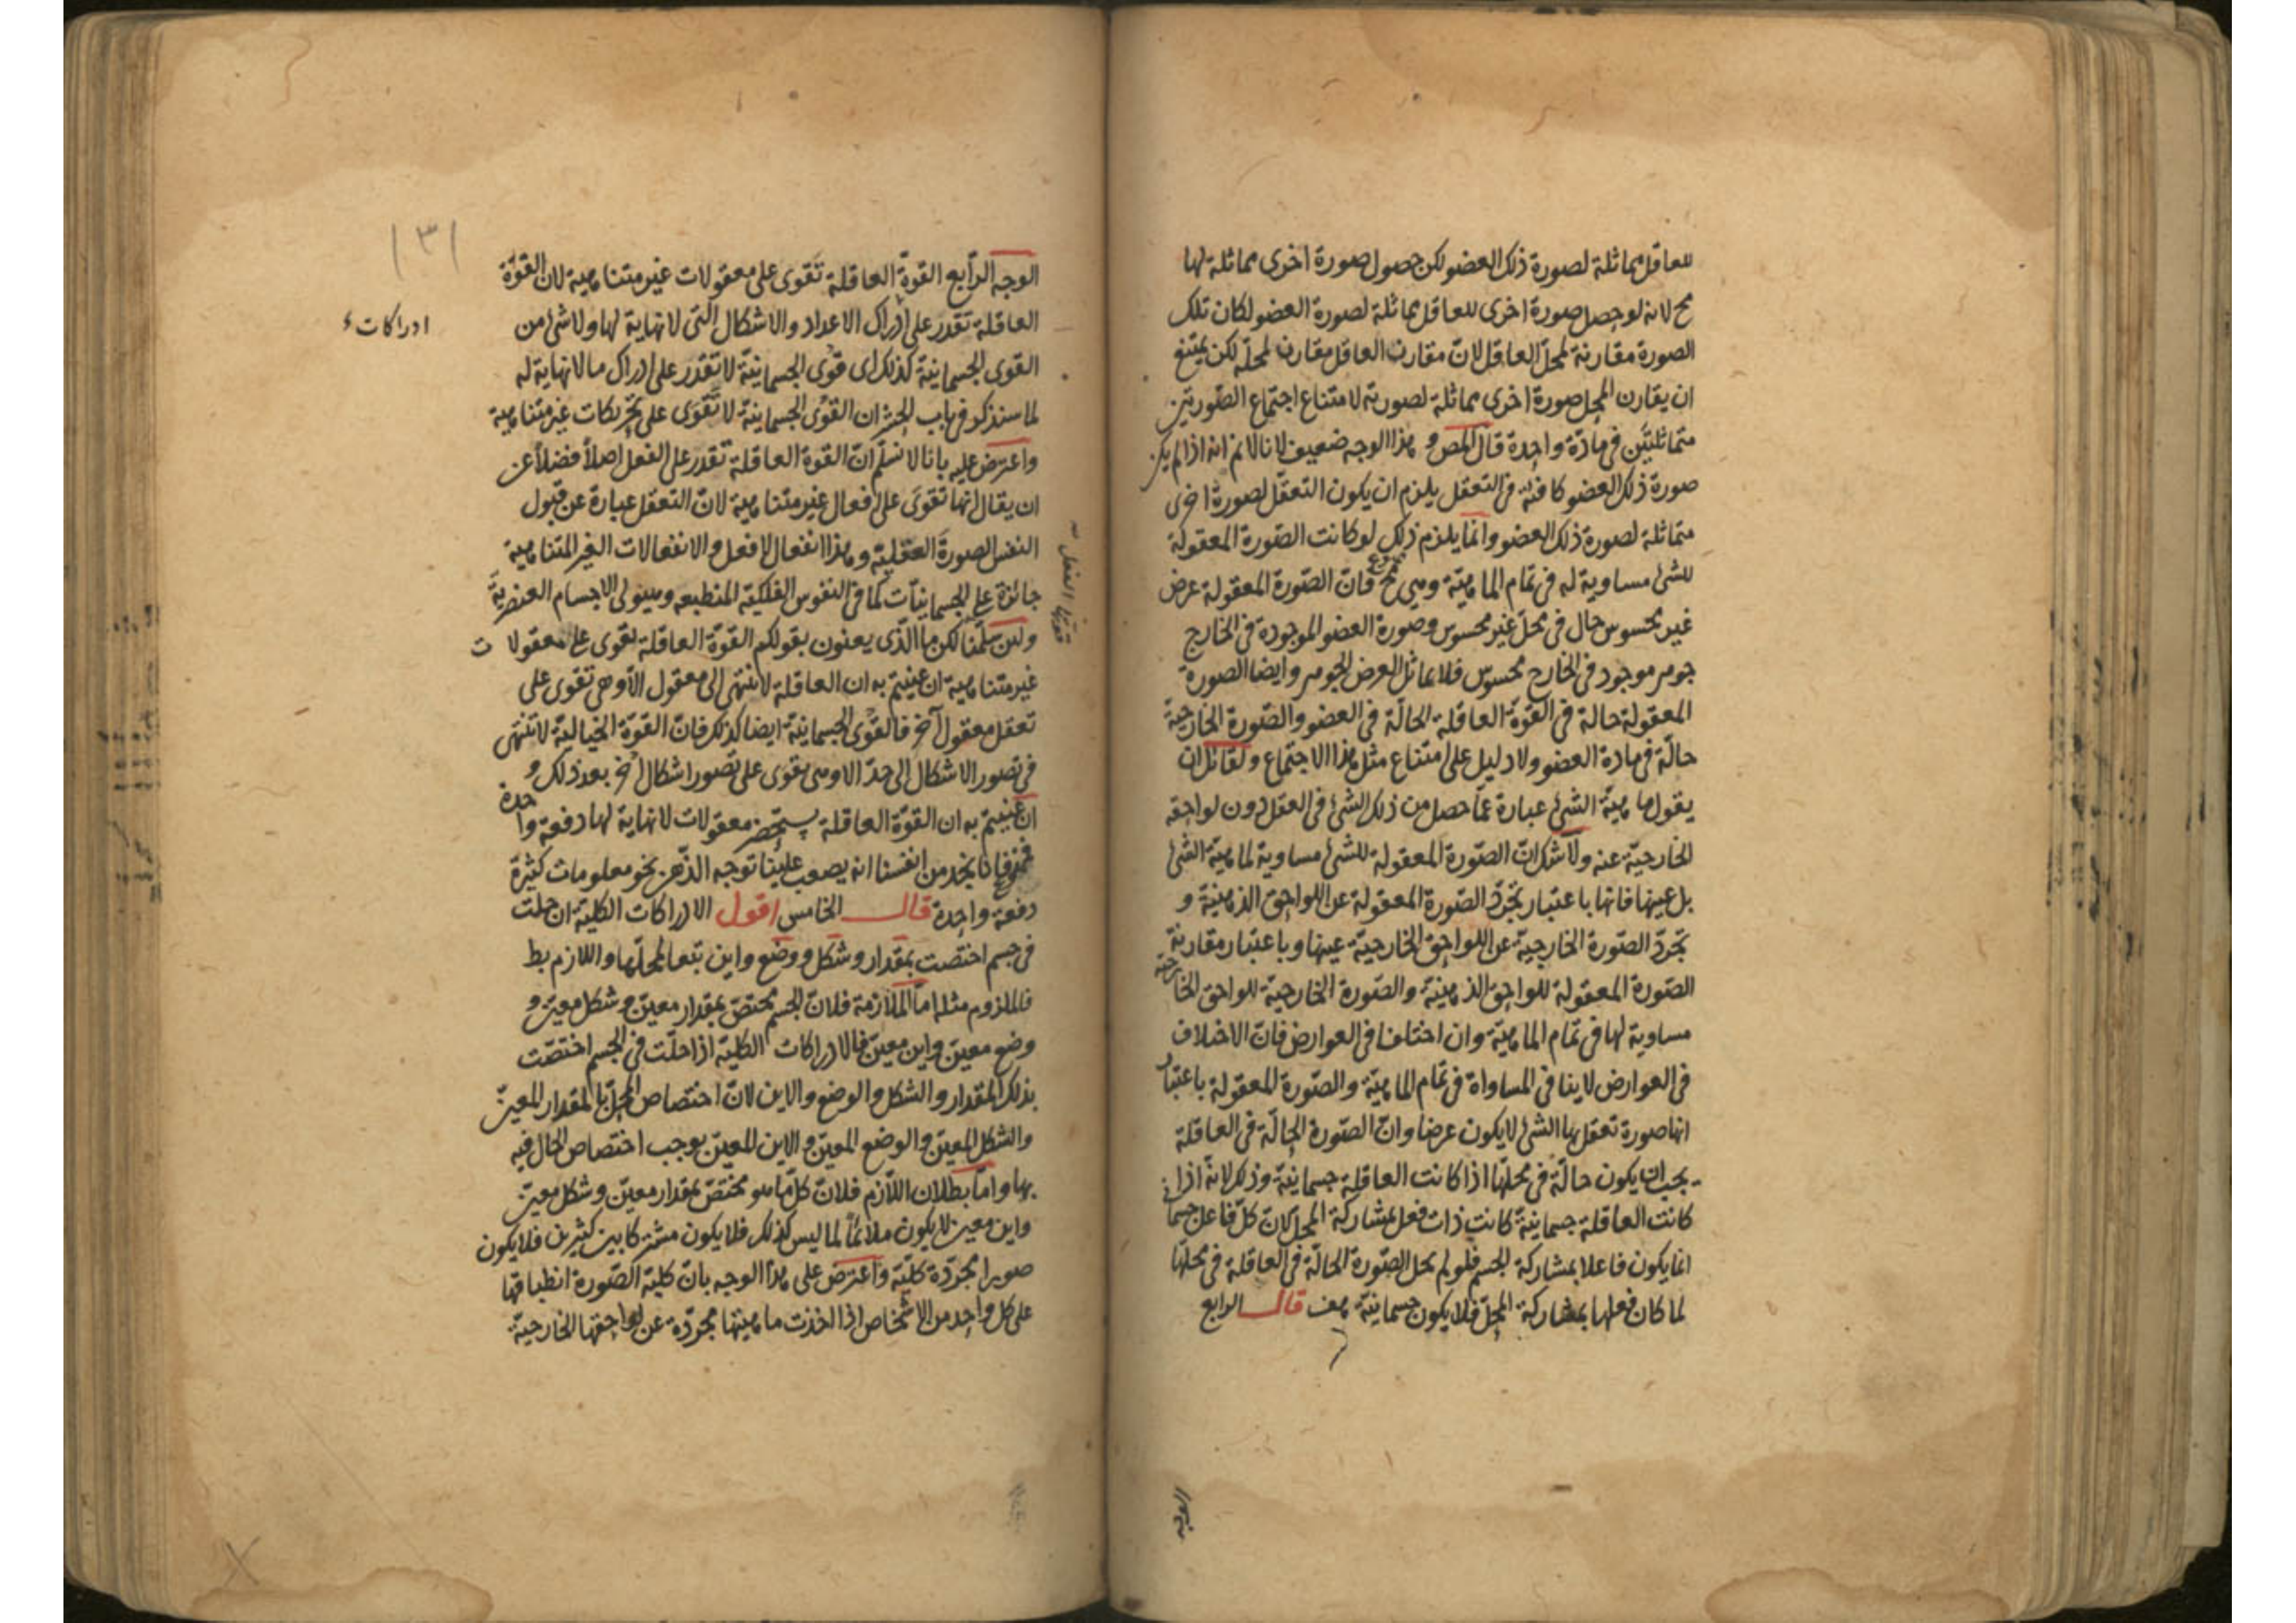 للعاقل مماثلة لصورة ذلك العضو لكن حصول صورة اخرى مماثلة لها
مح لانه لو حصل صورة اخرى للعاقل مماثلة لصورة العضو لكان تلك
الصورة مقارنة لمحل العاقل لانّ مقارن العاقل مقارن لمحلّه لكن يمتنع
ان يقارن المحل صورة اخرى مماثلة لصورته لامتناع اجتماع الصّورتين
متماثلتين فى مادّة واحدة قال المص و هذا الوجه ضعيف لانا لانم انه اذا لم يكن
صورة ذلك العضو كافية فى التعقل يلزم ان يكون التعقّل لصورة اخرى
متماثلة لصورة ذلك العضو وانّما يلزم ذلك لو كانت الصّورة المعقولة
للشئ مساوية له فى تمام الماهيّة وهى مم فانّ الصّورة المعقولة عرض
غير محسوس حال فى محلّ غير محسوس وصورة العضو الموجودة فى الخارج
جوهر موجود فى الخارج محسوس فلا يماثل العرض الجوهر وايضا الصورة
المعقولة حالة فى القوّة العاقلة الحالّة فى العضو والصّورة الخارجية
حالّة فى مادة العضو ولا دليل على امتناع مثل هذا الاجتماع ولقائل ان
يقول ماهيّة الشئ عبارة عمّا حصل من ذلك الشئ فى العقل دون لواحقه
الخارجيّة عنه ولا شك انّ الصّورة المعقولة للشئ مساوية لماهيّة الشئ
بل عينها فانها باعتبار تجرّد الصّورة المعقولة عن اللواحق الذهنية و
تجرّد الصّورة الخارجيّة عن اللواحق الخارجيّة عينها وباعتبار مقارنة
الصّورة المعقولة للواحق الذهنيّة والصّورة الخارجيّة للواحق الخارجيّة
مساوية لها فى تمام الماهيّة وان اختلفا فى العوارض فانّ الاختلاف
فى العوارض لا ينافى المساواة فى تمام الماهيّة والصّورة المعقولة باعتبار
انها صورة تعقل بها الشئ لا يكون عرضا وانّ الصّورة الحالّة فى العاقلة
يجب ان يكون حالّة فى محلّها اذا كانت العاقلة جسمانيّة وذلك لانّه اذا
كانت العاقلة جسمانيّة كانت ذات فعل بمشاركة المحل لانّ كلّ فاعل جسمانى
انما يكون فاعلا بمشاركة الجسم فلو لم يحل الصّورة الحالّة فى العاقلة فى محلّها
لما كان فعلها بمشاركة المحلّ فلا يكون جسمانيّة هف قال الرابع
الوجه
١٣١
الوجه الرّابع القوّة العاقلة تَقوى على معقولات غير متناهية لان القوّة
العاقلة تقدر على ادراك الاعداد والاشكال التى لا نهاية لها ولا شئ من
القوى الجسمانية كذلك اى قوى الجسمانيّة لا تقدر على ادراك ما لا نهاية له
لما سنذكر فى باب الحشر ان القوى الجسمانيّة لا تقوى على تحريكات غير متناهية
ادراكات
واعترض عليه بانا لا نسلّم انّ القوة العاقلة تقدر على الفعل اصلاً فضلاً عن
ان يقال انها تقوى على افعال غير متناهية لانّ التعقل عبارة عن قبول
النفس الصورة العقليّة وهذا انفعال لا فعل والانفعالات الغير المتناهية
جائزة على الجسمانيّات كما فى النفوس الفلكيّة المنطبعه وهيولى الاجسام العنصريّة
ولئن سلّمنا لكن ما الّذى يعنون بقولكم القوّة العاقلة تقوى على معقولات
غير متناهية ان عنيتم به ان العاقلة لا تنتهى الى معقول الّا وهى تقوى على
تعقل معقول آخر فالقوى الجسمانيّة ايضا كذلك فانّ القوّة الخياليّة لا تنتهى
فى تصور الاشكال الى حدّ الا وهى يقوى على تصور اشكال اخر بعد ذلك و
ان عنيتم به ان القوّة العاقلة يستحضر معقولات لا نهاية لها دفعة واحدة
فممنوع فانا نجد من انفسنا انه يصعب علينا توجه الذّهن نحو معلومات كثيرة
دفعة واحدة قال الخامس اقول الادراكات الكليّة ان حلت
فى جسم اختصّت بمقدار وشكل ووضع واين تبعا لمحلّها واللازم بط
فالملزوم مثله امّا الملازمة فلانّ الجسم مختصّ بمقدار معيّن وشكل معيّن و
وضع معيّن واين معيّن فالادراكات الكليّة اذا حلّت فى الجسم اختصّت
بذلك المقدار والشكل والوضع والاين لانّ اختصاص المحلّ بالمقدار المعيّن
والشكل المعيّن والوضع المعيّن والاين المعيّن يوجب اختصاص الحال فيه
بها وامّا بطلان اللّازم فلانّ كل ما هو مختصّ بمقدار معيّن وشكل معيّن
واين معين لا يكون ملائماً لما ليس كذلك فلا يكون مشتركا بين كثيرين فلا يكون
صورا مجرّدة كليّة واعترض على هذا الوجه بانّ كليّة الصّورة انطباقها
على كل واحد من الاشخاص اذا اخذت ماهيتها مجرّدة عن لواحقها الخارجيّة